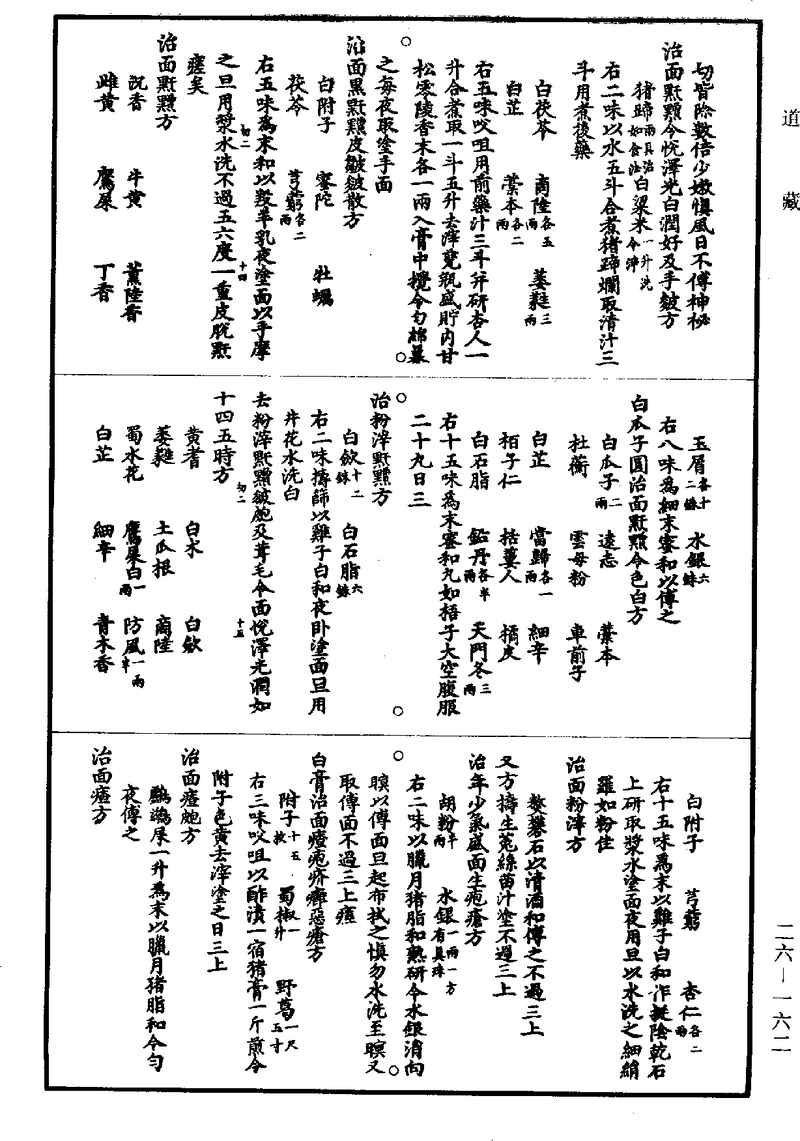 道藏
切皆除數倍少嫩慎風日不傳神秘
治面䵟䵳令悅澤光白潤好及手皴方
豬蹄兩具治如食法白粱米一升洗令淨
右二味以水五斗合煮豬蹄爛取清汁三
斗用煮後藥
白茯苓 商陸各五兩 萎蕤三兩
白芷 藁本各二兩
右五味㕮咀用前藥汁三斗并研杏人一
升合煮取一斗五升去滓瓷瓶盛貯內甘
松零陵香末各一兩入膏中攪令勻綿羃
之每夜取塗手面
治面黑䵟䵳皮皺皴散方
白附子 蜜陀 牡蠣
茯苓 芎藭各二兩
右五味為末和以羖羊乳夜塗面以手摩
之旦用漿水洗不過五六度一重皮脫䵟
瘥矣
初二
十四
治面䵟䵳方
沉香 牛黃 薰陸香
雌黃 鷹屎 丁香
玉屑各十二銖 水銀六銖
右八味為細末蜜和以傅之
白瓜子圓治面䵟䵳令色白方
白瓜子二兩 遠志 藁本
杜蘅 雲母粉 車前子
白芷 當歸各一兩 細辛
栢子仁 括蔞人 橘皮
白石脂 鉛丹各半兩 天門冬三兩
右十五味為末蜜和丸如梧子大空腹服
二十九日三
治粉滓䵟䵳方
白斂十二銖 白石脂六銖
右二味擣篩以雞子白和夜卧塗面旦用
井花水洗白
去粉滓䵟䵳皴皰及茸毛令面悅澤光潤如
十四五時方
初二
十五
黃耆 白朮 白斂
萎蕤 土瓜根 商陸
蜀水花 鷹屎白一兩 防風一兩半
白芷 細辛 青木香
白附子 芎藭 杏仁各二兩
右十五味為末以雞子白和作挺陰乾石
上研取漿水塗面夜用旦以水洗之細絹
羅如粉佳
治面粉滓方
熬礬石以清酒和傅之不過三上
又方擣生菟絲苗汁塗不過三上
治年少氣盛面生皰瘡方
胡粉半兩 水銀一兩一方有真珠
右二味以臘月豬脂和熟研令水銀消向
暝以傅面旦起布拭之慎勿水洗至暝又
取傅面不過三上瘥
白膏治面䵴皰疥癬惡瘡方
附子十五枚 蜀椒一升 野葛一尺五寸
右三味㕮咀以酢漬一宿豬膏一斤煎令
附子色黃去滓塗之日三上
治面䵴皰方
鸕鶿屎一升為末以臘月豬脂和令勻
夜傅之
治面䵴方
二六—一六二